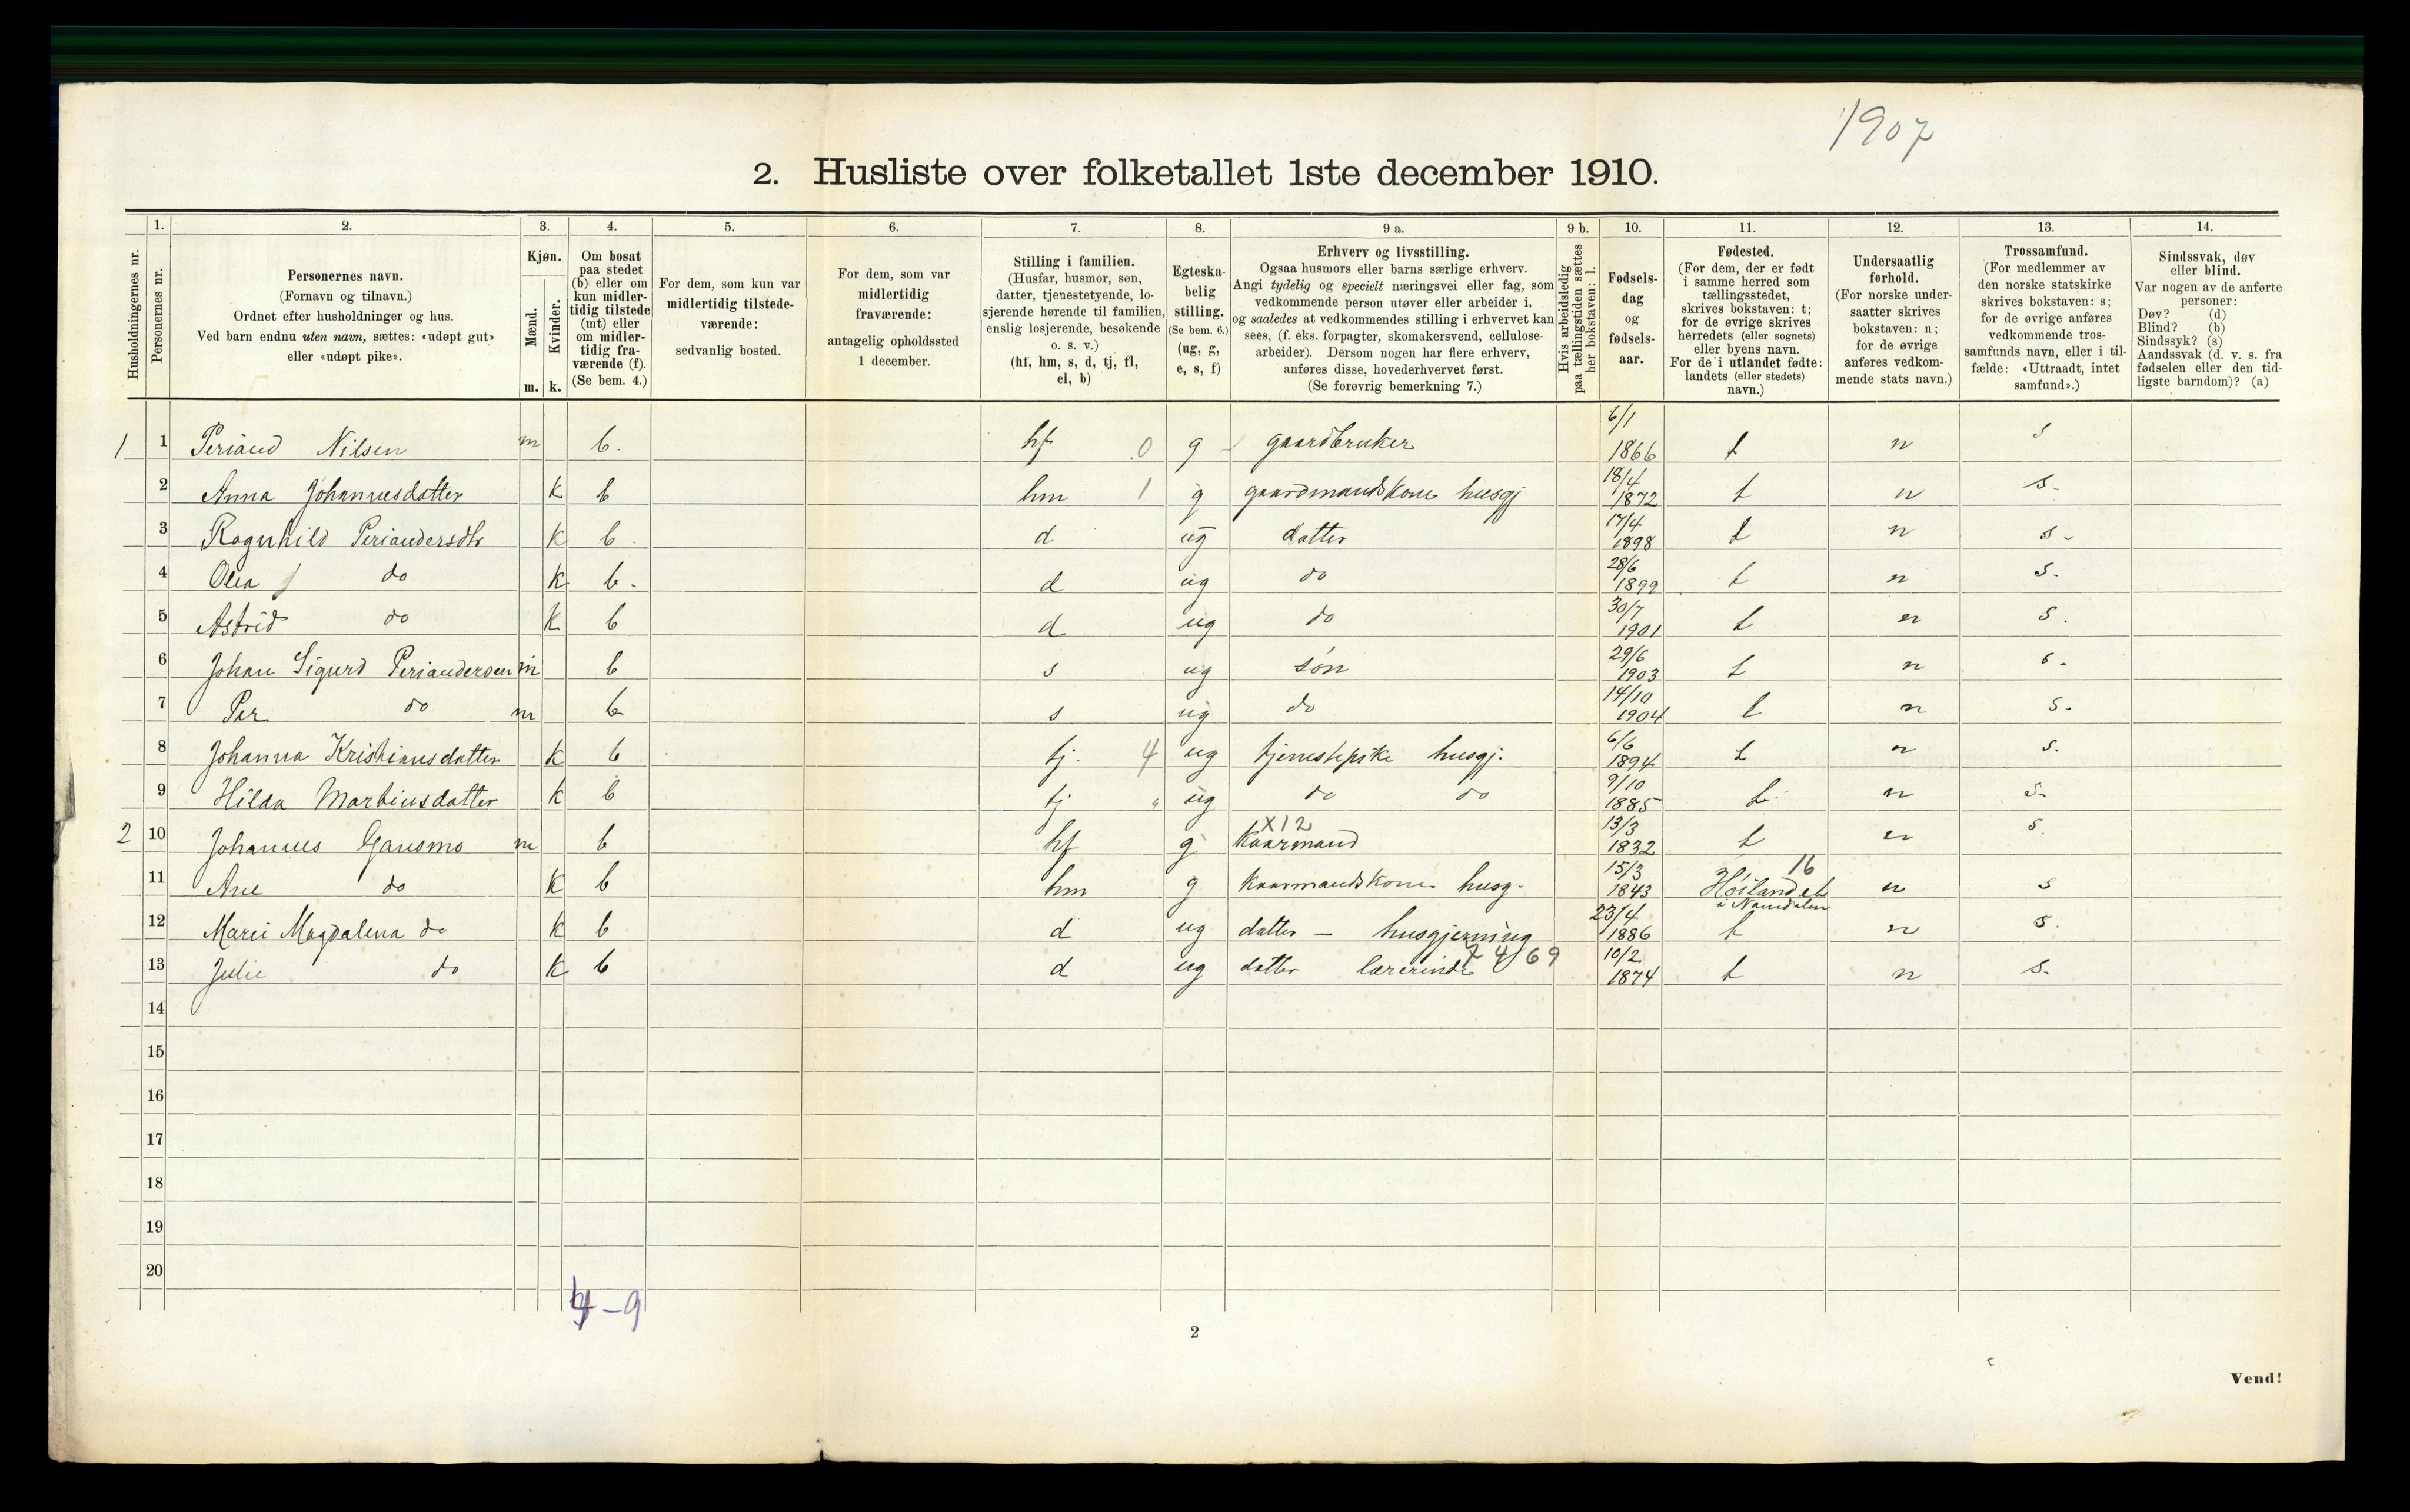 1907
2. Husliste over folketallet 1ste december 1910.
1. 2. 3. 4. 5. 6. 7. 8. 9 a. 9 b. 10. 11. 12. 13. 14.
Husholdningernes nr.
Personernes nr.
Personernes navn.
(Fornavn og tilnavn.)
Ordnet efter husholdninger og hus.
Ved barn endnu uten navn, sættes: «udøpt gut»
eller «udøpt pike».
Kjøn.
Mænd.
Kvinder.
m. k.
Om bosat
paa stedet
(b) eller om
kun midler-
tidig tilstede
(mt) eller
om midler-
tidig fra-
værende (f).
(Se bem. 4.)
For dem, som kun var
midlertidig tilstede-
værende:
sedvanlig bosted.
For dem, som var
midlertidig
fraværende:
antagelig opholdssted
1 december.
Stilling i familien.
(Husfar, husmor, søn,
datter, tjenestetyende, lo-
sjerende hørende til familien,
enslig losjerende, besøkende
o. s. v.)
(hf, hm, s, d, tj, fl,
el, b)
Egteska-
belig
stilling.
(Se bem. 6.)
(ug, g,
e, s, f)
Erhverv og livsstilling.
Ogsaa husmors eller barns særlige erhverv.
Angi tydelig og specielt næringsvei eller fag, som
vedkommende person utøver eller arbeider i,
og saaledes at vedkommendes stilling i erhvervet kan
sees, (f. eks. forpagter, skomakersvend, cellulose-
arbeider). Dersom nogen har flere erhverv,
anføres disse, hovederhvervet først.
(Se forøvrig bemerkning 7.)
Hvis arbeidsledig
paa tællingstiden sættes
her bokstaven: l.
Fødsels-
dag
og
fødsels-
aar.
Fødested.
(For dem, der er født
i samme herred som
tællingsstedet,
skrives bokstaven: t;
for de øvrige skrives
herredets (eller sognets)
eller byens navn.
For de i utlandet fødte:
landets (eller stedets)
navn.)
Undersaatlig
forhold.
(For norske under-
saatter skrives
bokstaven: n;
for de øvrige
anføres vedkom-
mende stats navn.)
Trossamfund.
(For medlemmer av
den norske statskirke
skrives bokstaven: s;
for de øvrige anføres
vedkommende tros-
samfunds navn, eller i til-
fælde: «Uttraadt, intet
samfund».)
Sindssvak, døv
eller blind.
Var nogen av de anførte
personer:
Døv? (d)
Blind? (b)
Sindssyk? (s)
Aandssvak (d. v. s. fra
fødselen eller den tid-
ligste barndom)? (a)
1 1 Periand Nilsen m b. hf 0 g gaardbruker 6/1 1866 t n s
2 Anna Johannesdatter k b hm 1 g gaardmandskone husgj 18/4 1872 t n s.
3 Ragnhild Periandersdtr k b. d ug datter 17/4 1898 t n s.
4 Olea do k b. d ug do 28/6 1899 t n s.
5 Astrid do k b d ug do 30/7 1901 t n s.
6 Johan Sigurd Periandersen m b s ug søn 29/6 1903 t n s.
7 Per do m b s ug do 14/10 1904 t n s.
8 Johanna Kristiansdatter k b tj. 4 ug tjenestepike husgj. 6/6 1894 t n s.
9 Hilda Martinsdatter k b tj " ug do do 9/10 1885 t. n s.
2 10 Johannes Gansmo m b hf g X12 Kaarmand 13/3 1832 t n s.
11 Ane do k b hm g kaarmandskone husg. 15/3 1843 16 Høilandet i Namdalen n s
12 Marie Magdalena do k b d ug datter – husgjerning 23/4 1886 t n s.
13 Julie do k b d ug datter lærerinde 2469 10/2 1874 t n s.
14
15
16
17
18
19
20
4–9
2
Vend!